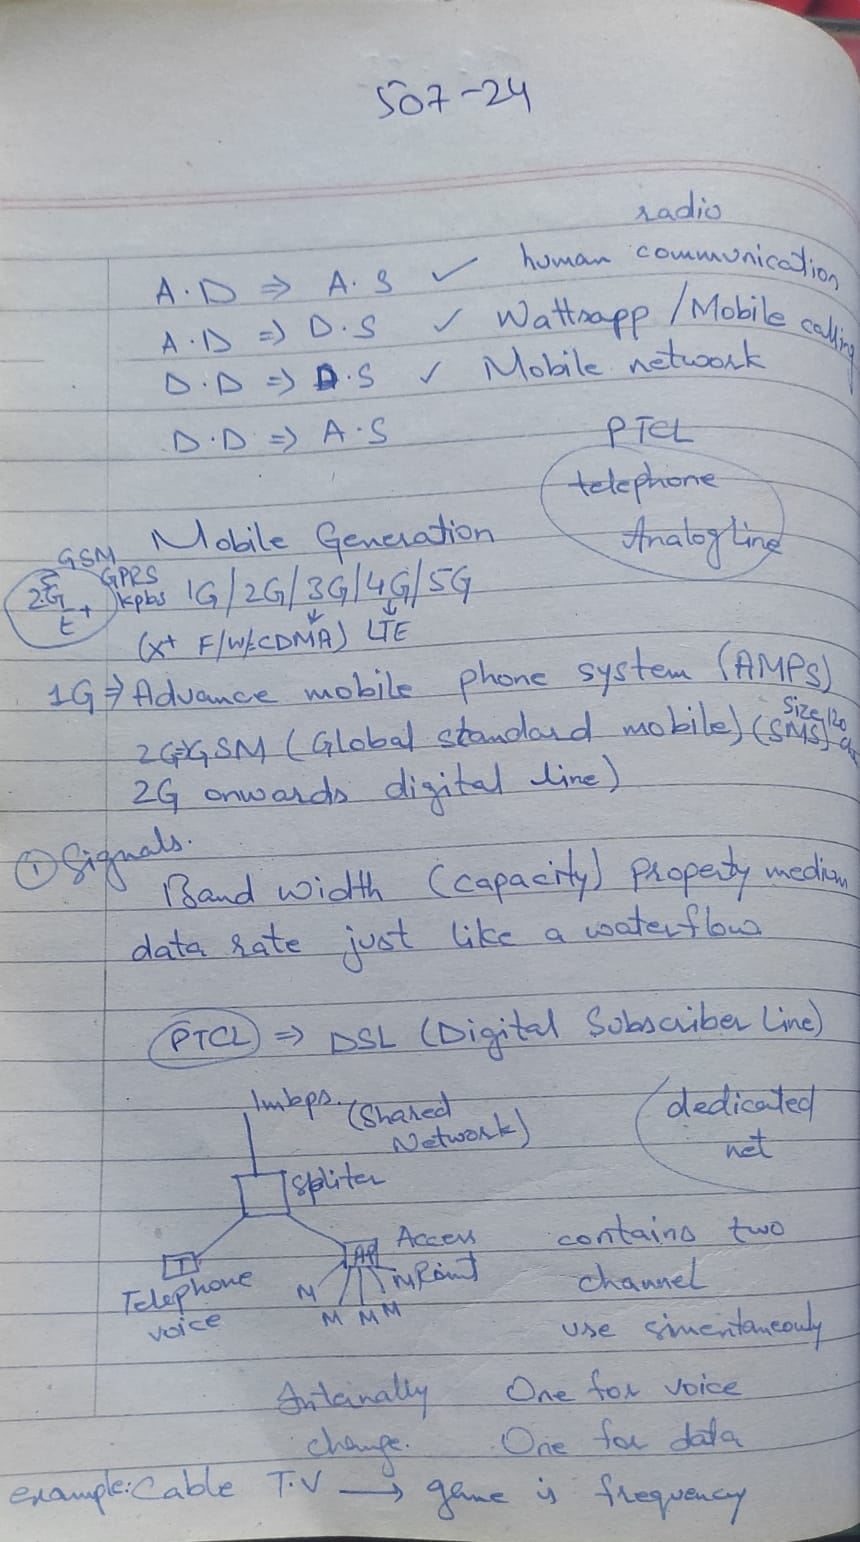 507-24
radio
A.D ⇒ A.S ✓ human communication
A.D ⇒ D.S ✓ Wattsapp / Mobile calling
D.D ⇒ D.S ✓ Mobile network
D.D ⇒ A.S
PTCL
telephone
Analog line
Mobile Generation
GSM
GPRS
2G +
E
kpbs 1G/2G/3G/4G/5G
CDMA) LTE
1G ⇒ Advance mobile phone system (AMPS)
2G⇒GSM (Global standard mobile) (SMS)
Size 120
2G onwards digital line)
① Signals.
Band width (capacity) property medium
data rate just like a waterflow
PTCL ⇒ DSL (Digital Subscriber Line)
1mbps. (Shared
Network)
dedicated
net
Spliter
T
AP
Access
Point
Telephone
voice
M
M M M
M
contains two
channel
use simentaneouly
Internally
change.
One for voice
One for data
example: Cable T.V → game is frequency